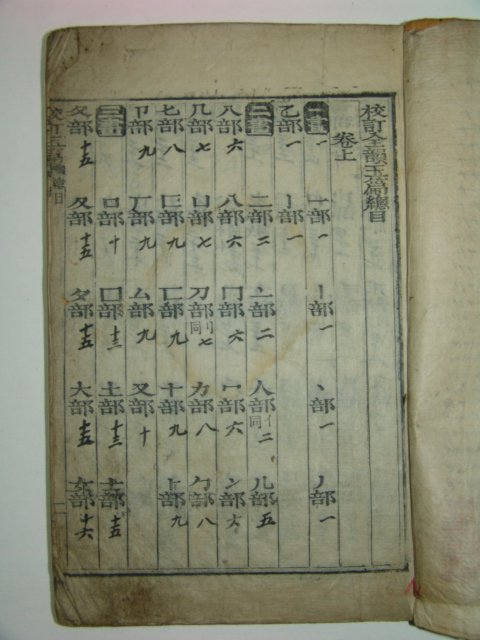 校訂全韻玉篇總目
卷上
一畫 一部一 丨部一 丶部一 丿部一
乙部一 亅部一
二畫 二部二 亠部二 人部亻同二 儿部五
入部六 八部六 冂部六 冖部六 冫部六
几部七 凵部七 刀部刂同七 力部八 勹部八
匕部八 匚部九 匸部九 十部九 卜部九
卩部九 厂部九 厶部九 又部十
三畫 口部十 囗部十三 土部十三 士部十五
夂部十五 夊部十五 夕部十五 大部十五 女部十六
校訂玉篇 總目 一